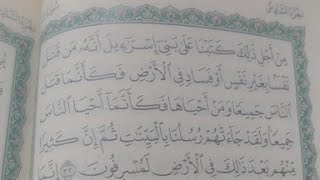 مِنْ أَجْلِ ذَٰلِكَ كَتَبْنَا عَلَىٰ بَنِىٓ إِسْرَٰٓءِيلَ أَنَّهُۥ مَن قَتَلَ
نَفْسًۢا بِغَيْرِ نَفْسٍ أَوْ فَسَادٍ فِى ٱلْأَرْضِ فَكَأَنَّمَا قَتَلَ
ٱلنَّاسَ جَمِيعًا وَمَنْ أَحْيَاهَا فَكَأَنَّمَآ أَحْيَا ٱلنَّاسَ
جَمِيعًا وَلَقَدْ جَآءَتْهُمْ رُسُلُنَا بِٱلْبَيِّنَٰتِ ثُمَّ إِنَّ كَثِيرًا
مِّنْهُم بَعْدَ ذَٰلِكَ فِى ٱلْأَرْضِ لَمُسْرِفُونَ ٣٢ إِنَّمَا